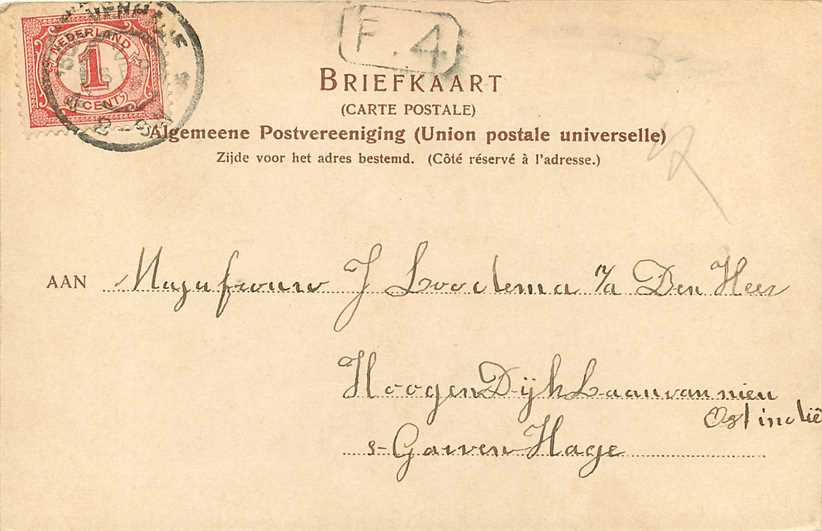 NEDERLAND
1
CENT
F.4
BRIEFKAART
(CARTE POSTALE)
Algemeene Postvereeniging (Union postale universelle)
Zijde voor het adres bestemd. (Côté réservé à l'adresse.)
AAN Mejufrouw J Lootsma %a Den Heer
Hoogen Dijk Laan van nieu
Ost indië
s-Gaven Hage